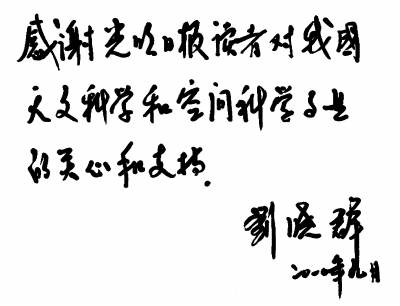 感谢光明日报读者对我國
天文科学和空间科学事业
的关心和支持.
劉晓群
二〇一〇年九月